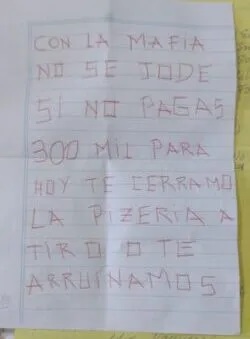 CON LA MAFIA
NO SE JODE
SI NO PAGAS
300 MIL PARA
HOY TE CERRAMO
LA PIZERIA A
TIRO O TE
ARRUINAMOS